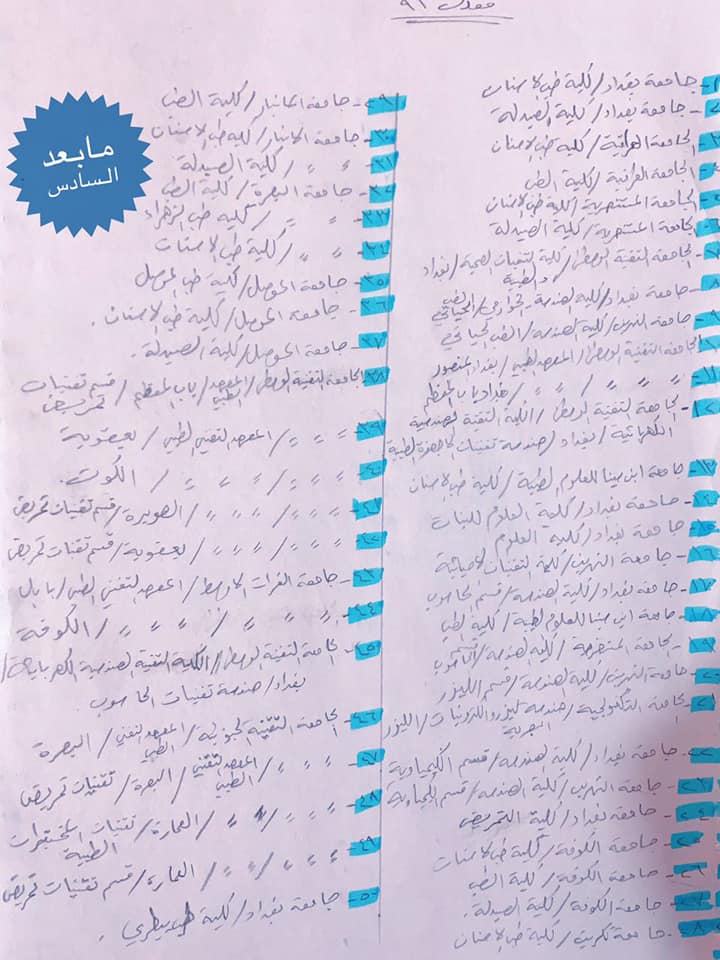 معدل ٩١
مابعد
السادس
١- جامعة بغداد/كلية طب الاسنان
٢- جامعة بغداد/كلية الصيدلة
٣- الجامعة العراقية/كلية طب الاسنان
٤- الجامعة العراقية/كلية الطب
٥- الجامعة المستنصرية/كلية طب الاسنان
٦- الجامعة المستنصرية/كلية الصيدلة
٧- الجامعة التقنية الوسطى/كلية التقنيات الصحية/بغداد
والطبية
٨- جامعة بغداد/كلية الهندسة الخوارزمي/الطب الحياتي
٩- جامعة النهرين/كلية الهندسة/الطب الحياتي
١٠- الجامعة التقنية الوسطى/المعهد الطبي/بغداد المنصور
١١- 〃 〃 / 〃 〃 /بغداد باب المعظم
١٢- الجامعة التقنية الوسطى/الكلية التقنية الهندسية
الكهربائية/بغداد/هندسة تقنيات الاجهزة الطبية
١٣- جامعة ابن سينا للعلوم الطبية/كلية طب الاسنان
١٤- جامعة بغداد/كلية العلوم للبنات
١٥- جامعة بغداد/كلية العلوم
١٦- جامعة النهرين/كلية التقنيات الاحيائية
١٧- جامعة بغداد/كلية الهندسة/قسم الحاسوب
١٨- جامعة ابن سينا للعلوم الطبية/كلية الطب
١٩- الجامعة المستنصرية/كلية الهندسة/قسم الحاسوب
٢٠- جامعة النهرين/كلية الهندسة/قسم الليزر
٢١- الجامعة التكنولوجية/هندسة ليزر والكترونيات/الليزر
البصرية
٢٢- جامعة بغداد/كلية الهندسة/قسم الكيمياوية
٢٣- جامعة النهرين/كلية الهندسة/قسم الكيمياوية
٢٤- جامعة بغداد/كلية التمريض
٢٥- جامعة الكوفة/كلية طب الاسنان
٢٦- جامعة الكوفة/كلية الطب
٢٧- جامعة الكوفة/كلية الصيدلة.
٢٨- جامعة تكريت/كلية طب الاسنان
٢٩- جامعة الانبار/كلية الطب
٣٠- جامعة الانبار/كلية طب الاسنان
٣١- 〃 〃 /كلية الصيدلة
٣٢- جامعة البصرة/كلية الطب
٣٣- 〃 〃 /كلية طب الزهراء
٣٤- 〃 〃 /كلية طب الاسنان
٣٥- جامعة الموصل/كلية طب الموصل
٣٦- جامعة الموصل/كلية طب الاسنان.
٣٧- جامعة الموصل/كلية الصيدلة.
٣٨- الجامعة التقنية الوسطى/المعهد الطبي/باب المعظم/قسم تقنيات
تمريض
٣٩- 〃 〃 〃 /المعهد التقني الطبي/بعقوبة
٤٠- 〃 〃 〃 / 〃 〃 〃 /الكوت.
٤١- 〃 〃 〃 / 〃 〃 〃 /الصويرة/قسم تقنيات تمريض
٤٢- 〃 〃 〃 / 〃 〃 〃 /بعقوبة/قسم تقنيات تمريض
٤٣- جامعة الفرات الاوسط/المعهد التقني الطبي/بابل
٤٤- 〃 〃 〃 / 〃 〃 〃 /الكوفة
٤٥- الجامعة التقنية الوسطى/الكلية التقنية الهندسية الكهربائية/
بغداد/هندسة تقنيات الحاسوب.
٤٦- الجامعة التقنية الجنوبية/المعهد التقني الطبي/البصرة
٤٧- 〃 〃 〃 /المعهد التقني الطبي/البصرة/تقنيات تمريض
٤٨- 〃 〃 〃 / 〃 〃 /العمارة/تقنيات المختبرات
الطبية
٤٩- 〃 〃 〃 / 〃 〃 /العمارة/قسم تقنيات تمريض
٥٠- جامعة بغداد/كلية طب بيطري.